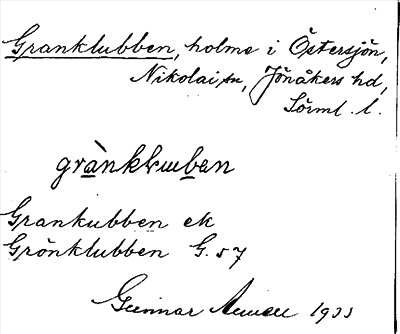 Granklubben, holme i Östersjön,
Nikolai sn, Jönåkers hd,
Sörml. l.
grànkkuban
Grankubben ek
Grönklubben G. 57
Gunnar 1933